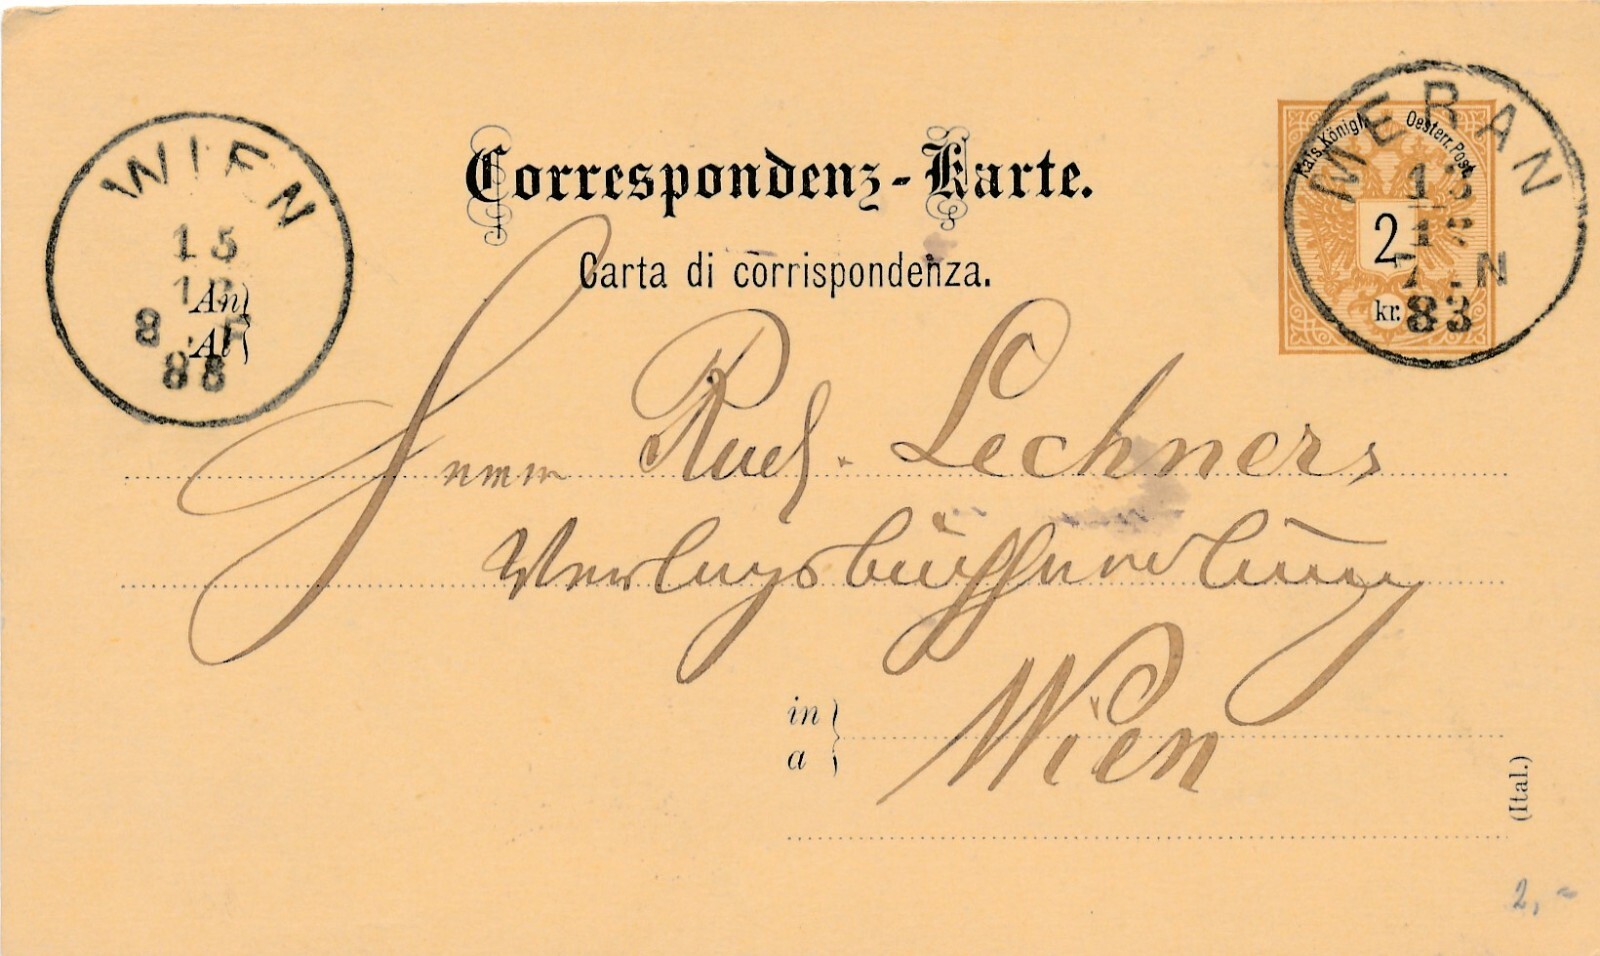 Correspondenz-Karte.
Carta di corrispondenza.
Kais. Königl. Oesterr. Post.
2
kr.
MERAN
13
12
7. N
83
WIEN
15
12
8. F
83
An
Al
Herrn Rud. Lechner's
Verlagsbuchhandlung
in
a
Wien
(Ital.)
2,-